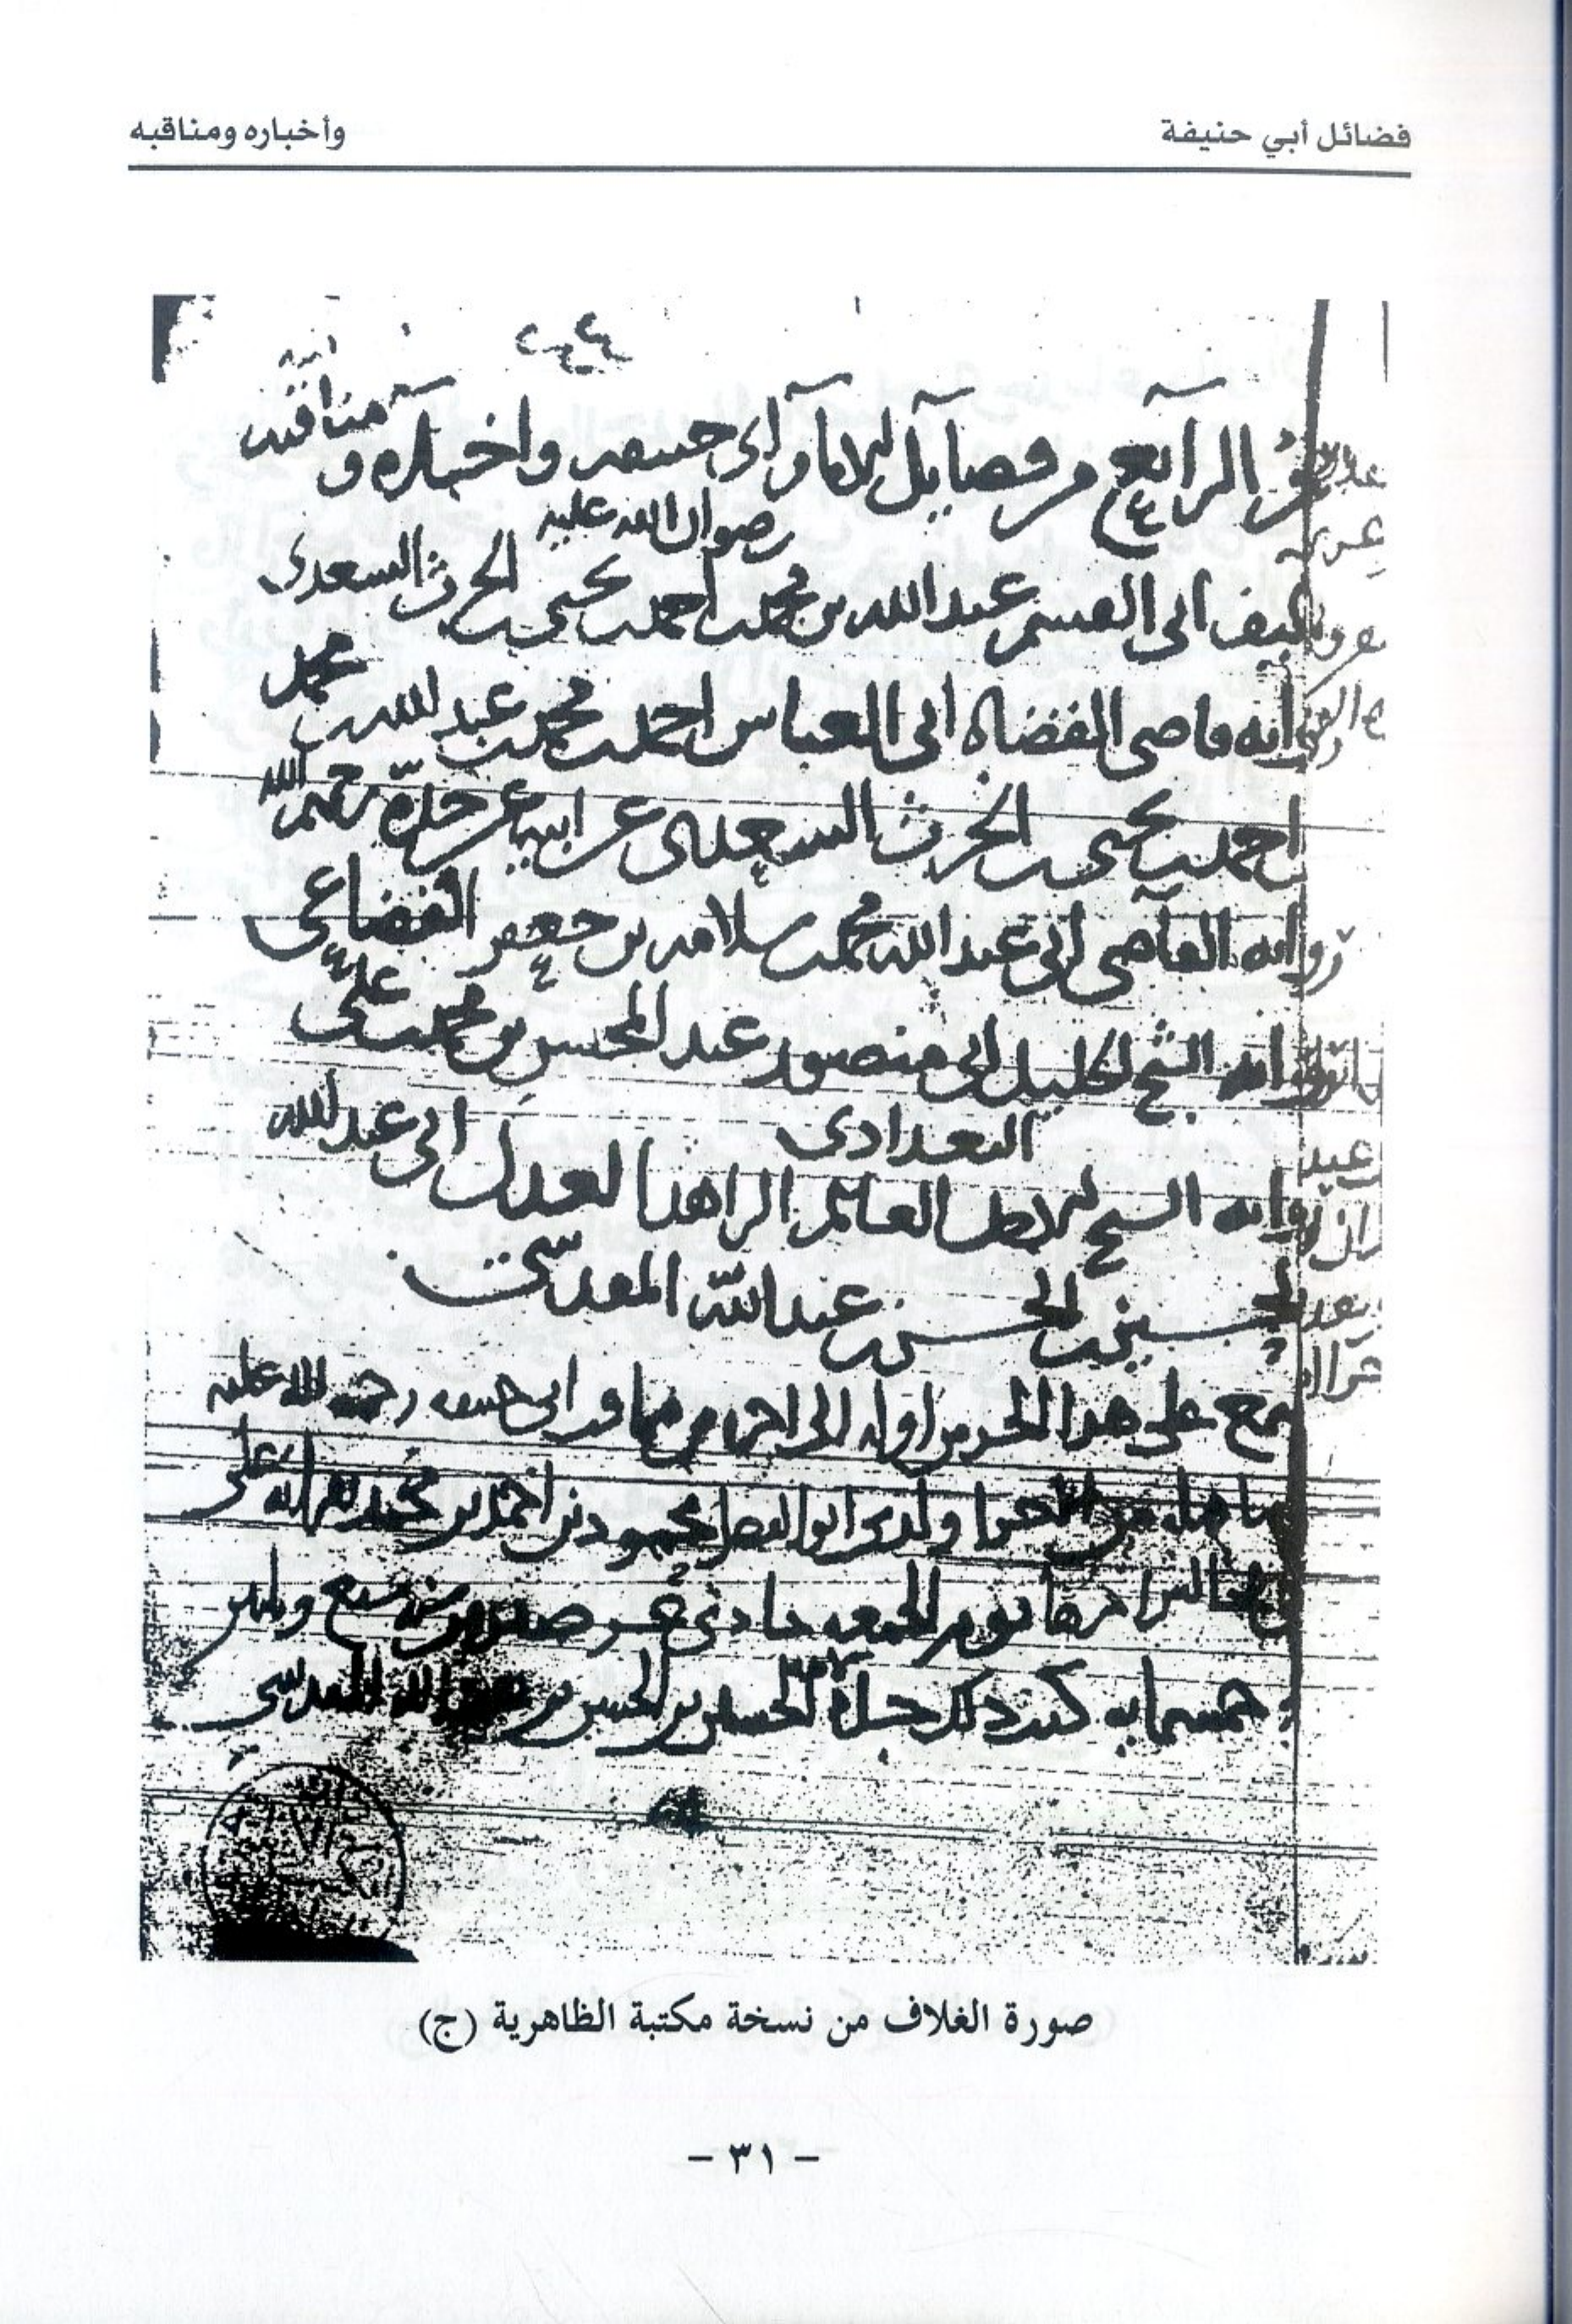 فضائل أبي حنيفة وأخباره ومناقبه
الرابع من فضايل الامام أبي حنيفة وأخباره و مناقبه
رضوان الله عليه
تأليف ابى القسم عبد الله بن محمد بن احمد بن يحيى بن الحرث السعدى
رواية قاضى القضاة ابى العباس احمد بن محمد بن عبد الله بن محمد
بن احمد بن يحيى بن الحرث السعدى عن ابيه عن جده رحمهم الله
رواية القاضى ابى عبد الله محمد بن سلامة بن جعفر القضاعى
رواية الشيخ الجليل ابى منصور عبد المحسن بن محمد بن علي
البغدادى
رواية الشيخ العالم الزاهد العدل ابى عبد الله
الحسين بن الحسن بن عبد الله المقدسي
سمع على هذا الجزء من اوله الى اخره من مناقب ابى حنيفة رحمة الله عليه
ولدى ابو الفضل محمود بن احمد بن محمد
يوم الجمعة حادي عشر صفر سنة سبع وثلثين
وخمسماية كتبه الحسين بن الحسن بن عبد الله المقدسي
صورة الغلاف من نسخة مكتبة الظاهرية (ج)
- ٣١ -